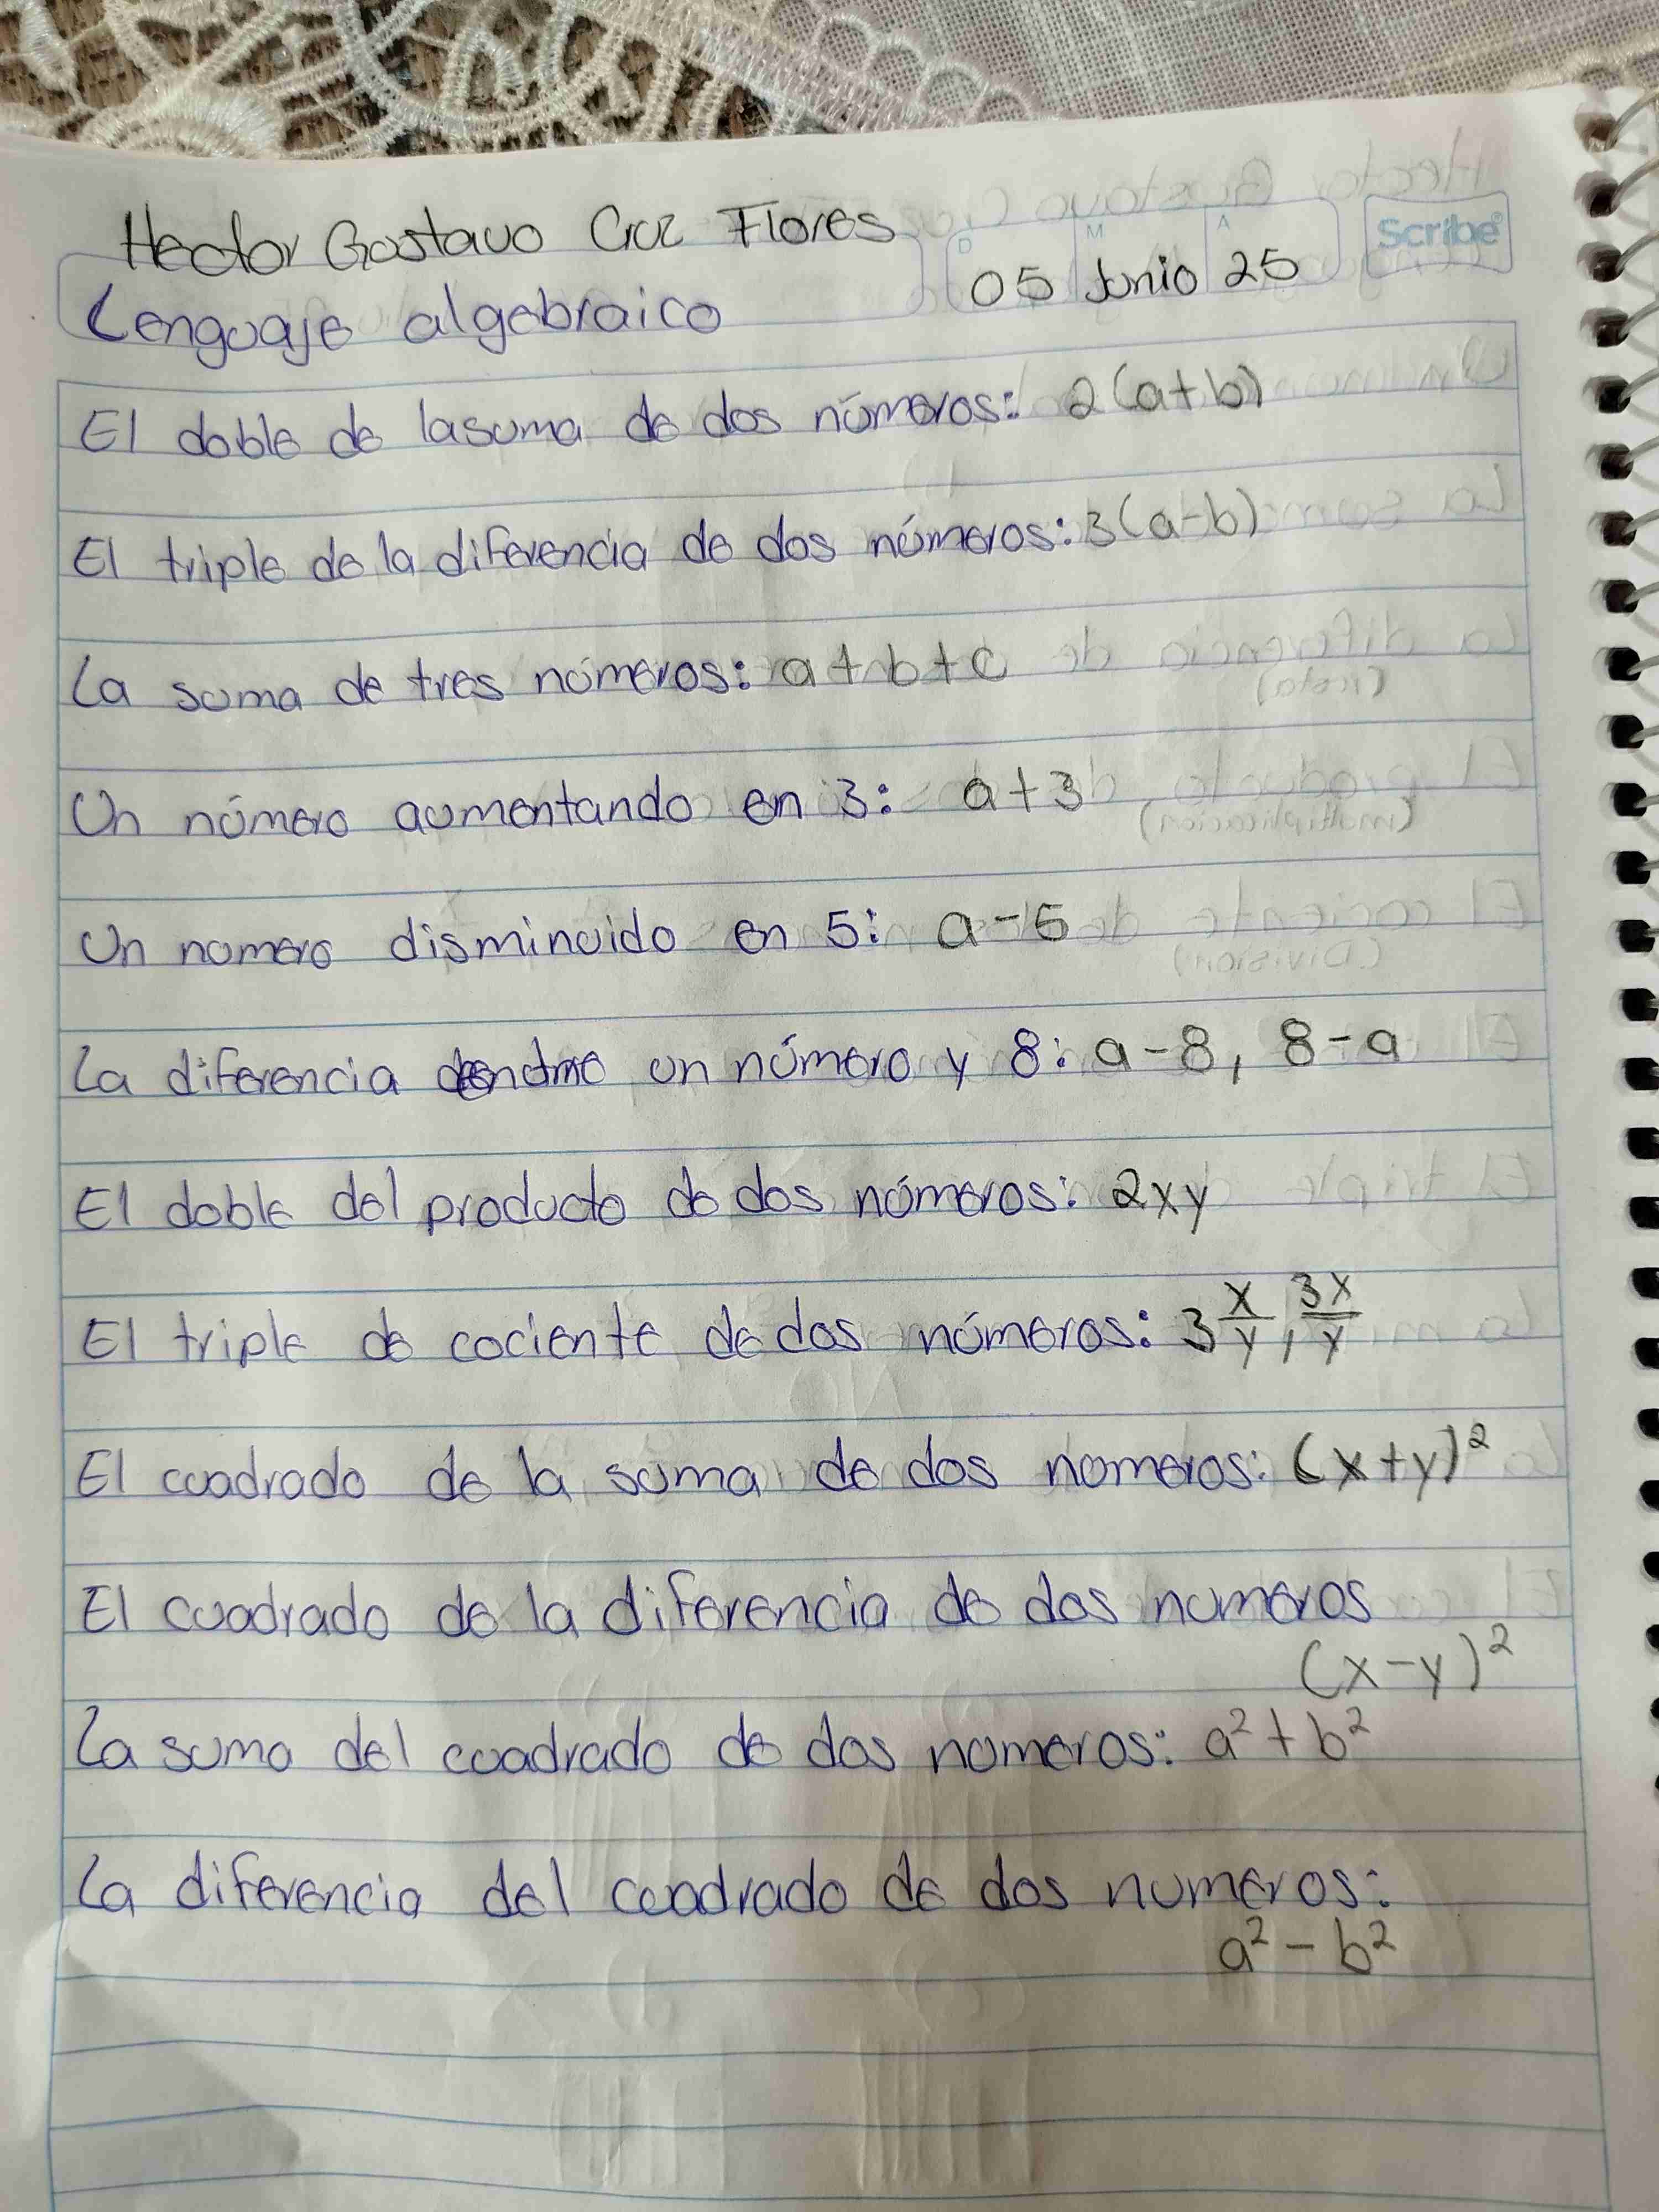 Hector Gustavo Cruz Flores
D M A
Scribe
05 Junio 25
Lenguaje algebraico
El doble de la suma de dos números: 2(a+b)
El triple de la diferencia de dos números: 3(a-b)
La suma de tres números: a+b+c
Un número aumentando en 3: a+3
Un numero disminuido en 5: a-5
La diferencia un número y 8: a-8, 8-a
El doble del producto de dos números: 2xy
El triple de cociente de dos números: 3 x/y, 3x/y
El cuadrado de la suma de dos numeros: (x+y)²
El cuadrado de la diferencia de dos numeros
(x-y)²
La suma del cuadrado de dos numeros: a²+b²
La diferencia del cuadrado de dos numeros:
a²-b²